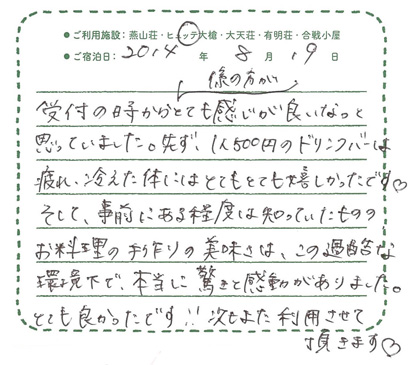 ●ご利用施設:燕山荘・ヒュッテ大槍・大天荘・有明荘・合戦小屋
●ご宿泊日:2014年8月19日
様の方がい
受付の日子からとても感じが良いなっと
思っていました。先ず、1人500円のドリンクバーは
疲れ、冷えた体にはとてもとても嬉しかったです♡
そして、事前にある程度は知っていたものの
お料理の手作りの美味さは、この過酷な
環境下で、本当に驚きと感動がありました。
とても良かったです!!次もまた利用させて
頂きます♡